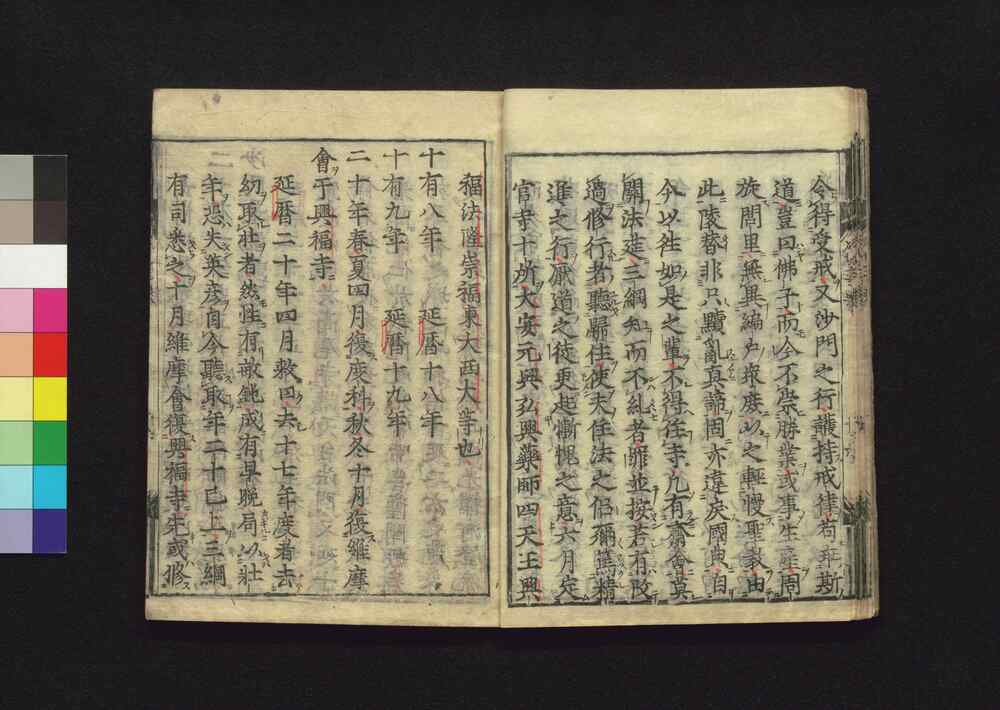 令得受戒又沙門之行護持戒律苟乖斯
道豈曰佛子而今不崇勝業或事生產周
旋閭里無異編戶衆庶以之輕慢聖教由
此陵替非只黷亂真諦固亦違戾國典自
今以徃如是之輩不得住寺凡有齋會莫
關法莚三綱知而不糺者罪並按若有改
過修行者聽歸住使未住法之侶彌篤精
進之行厭道之徒更起慚愧之意六月定
官寺十所大安元興弘興藥師四天王興
福法隆崇福東大西大等也
十有八年延曆十八年
十有九年延曆十九年
二十年春夏四月復度科秋冬十月復維摩
會于興福寺
延曆二十年四月救四去十七年度者去
幼取壯者然性有敏鈍成有早晚局以壯
年恐失英彥自今聽取年二十已上三綱
有司悉之十月維摩會復興福寺先或修